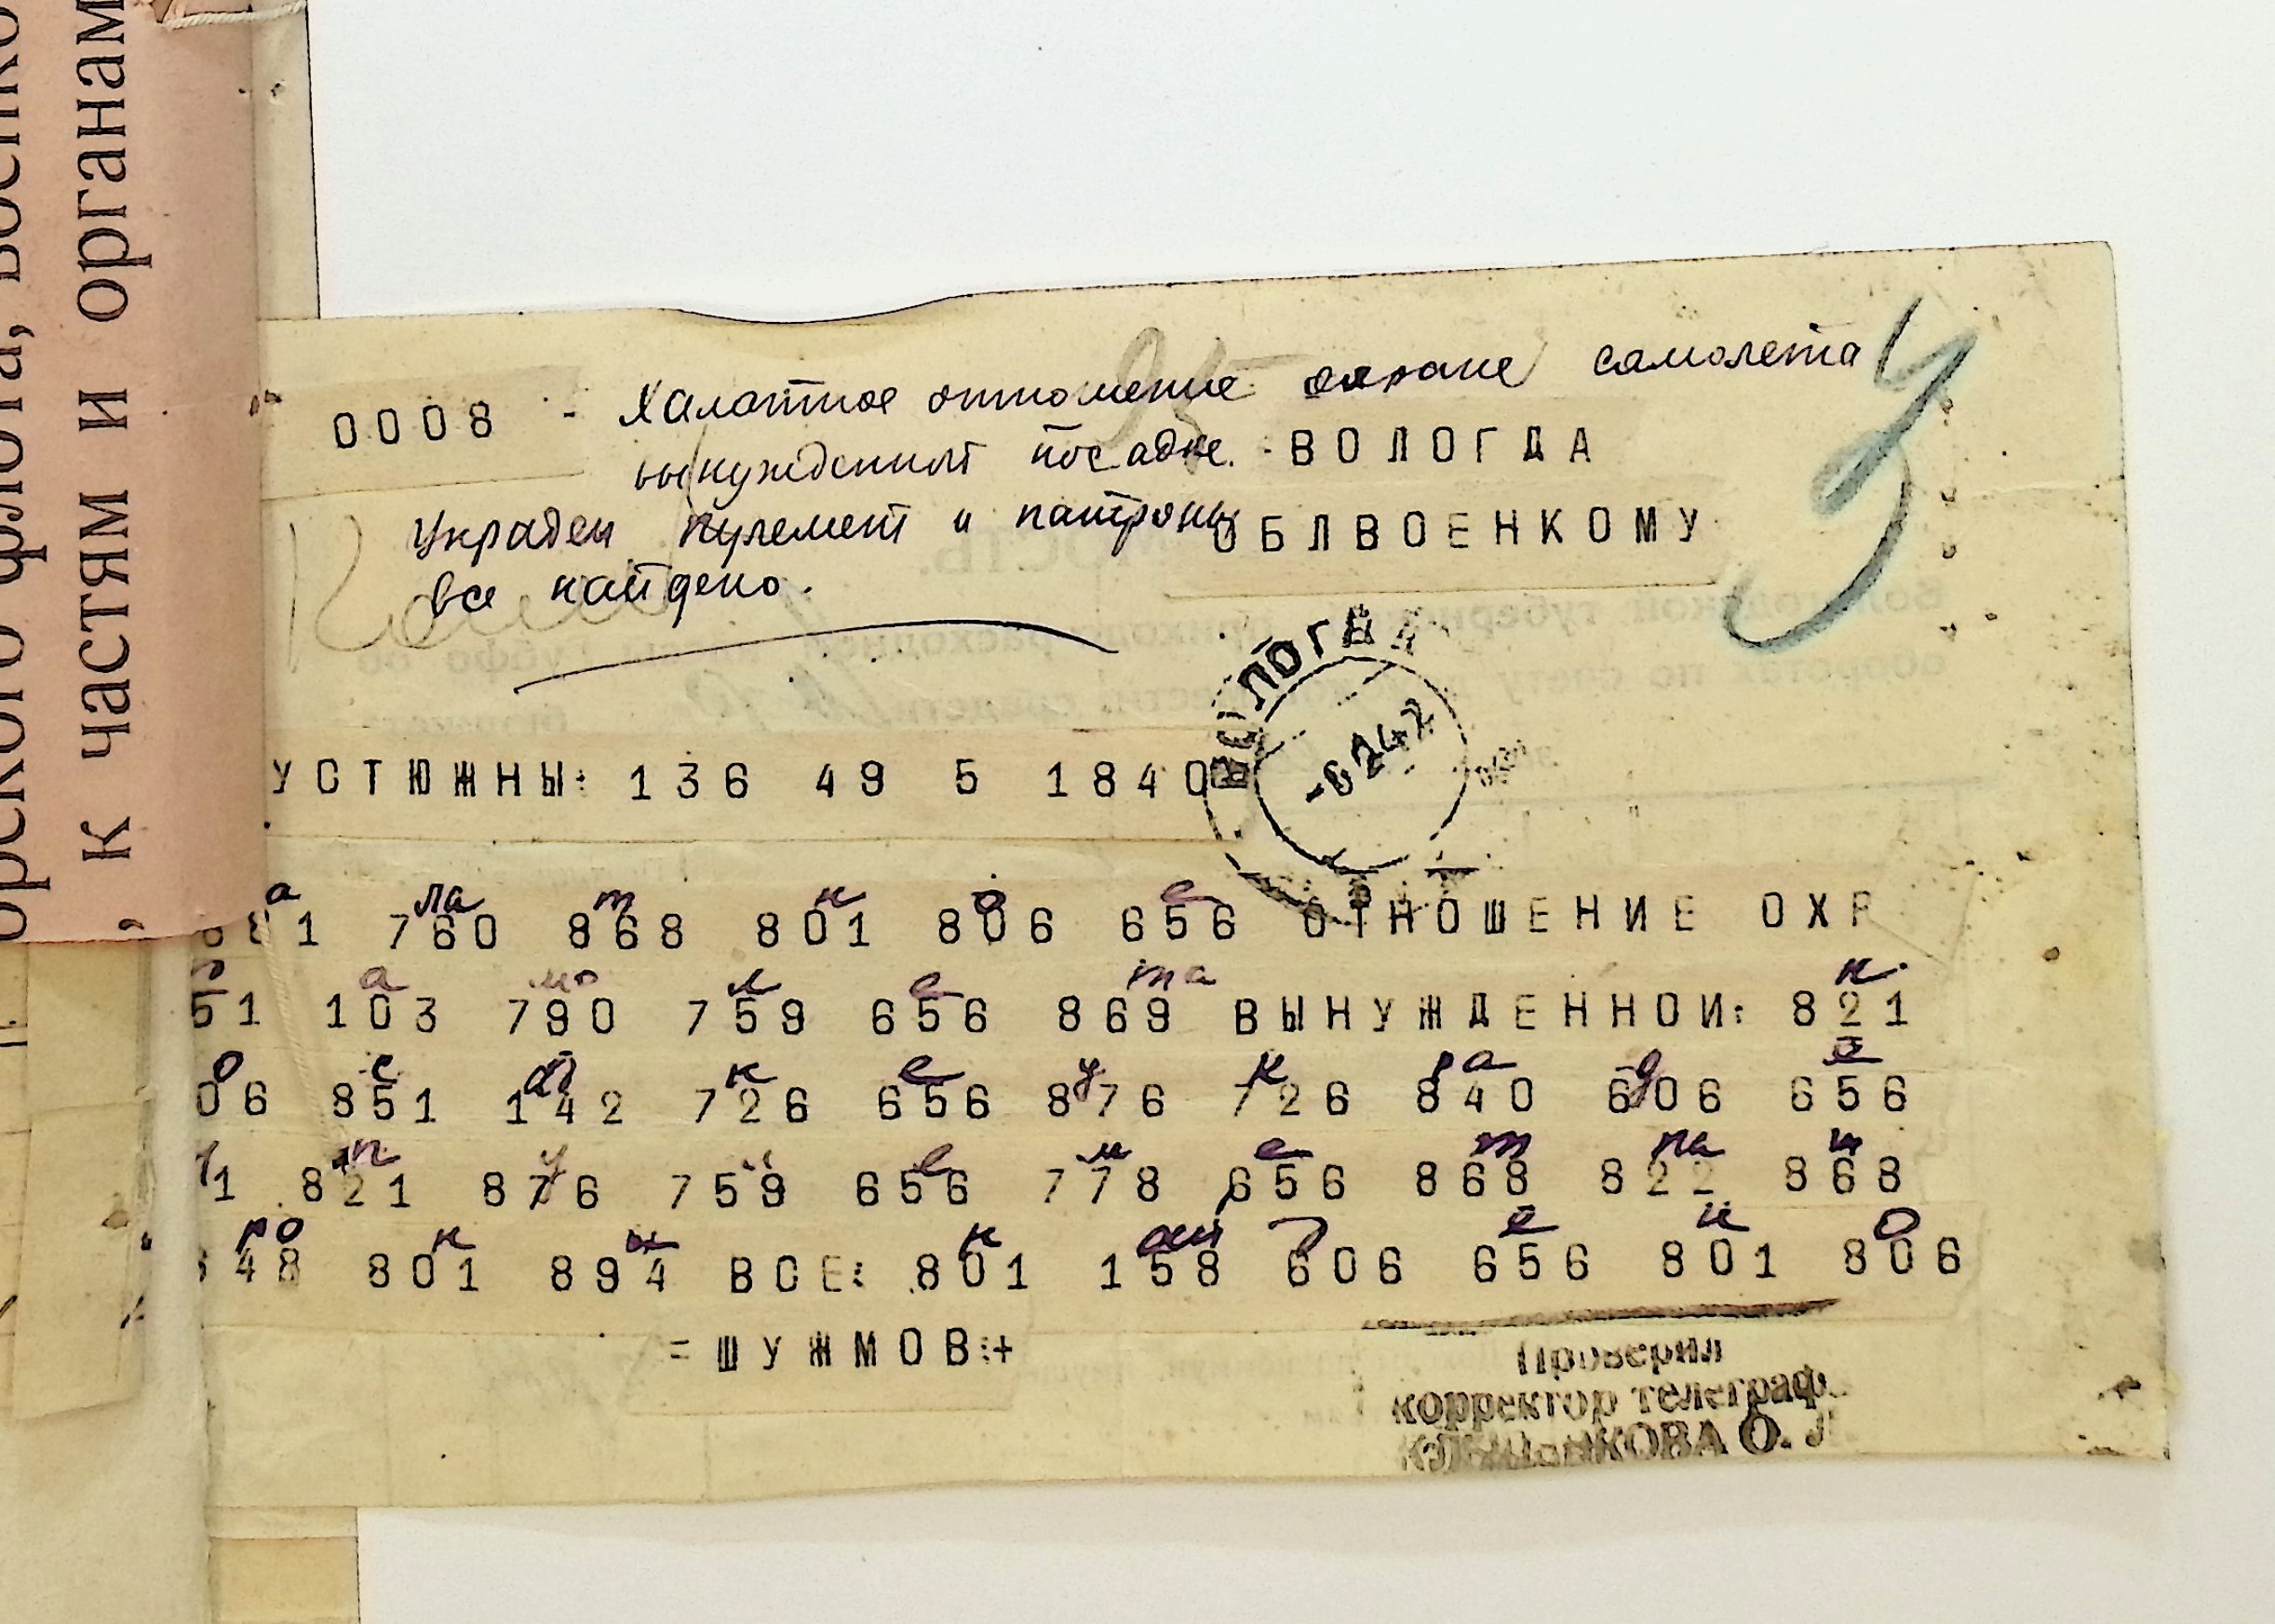 орского флота, военко
, к частям и органам
0008 - Халатное отношение охране самолета
вынужденной посадке. ВОЛОГДА
Украден пулемет и патроны ОБЛВОЕНКОМУ
все найдено.
95
У
ВОЛОГДА
-6 2 42
УСТЮЖНЫ: 136 49 5 1840
а ла т н о е
881 760 868 801 806 656 ОТНОШЕНИЕ ОХР
а мо л е та п
51 103 790 759 656 869 ВЫНУЖДЕННОИ: 821
о с ад к е у к ра д е
06 851 142 726 656 876 726 840 606 656
п у л е м е т па т
1 821 876 759 656 778 656 868 822 868
ро н ы н ай д е н о
48 801 894 ВСЕ: 801 158 606 656 801 806
=ШУЖМОВ:+
Проверил
корректор телеграф.
О.